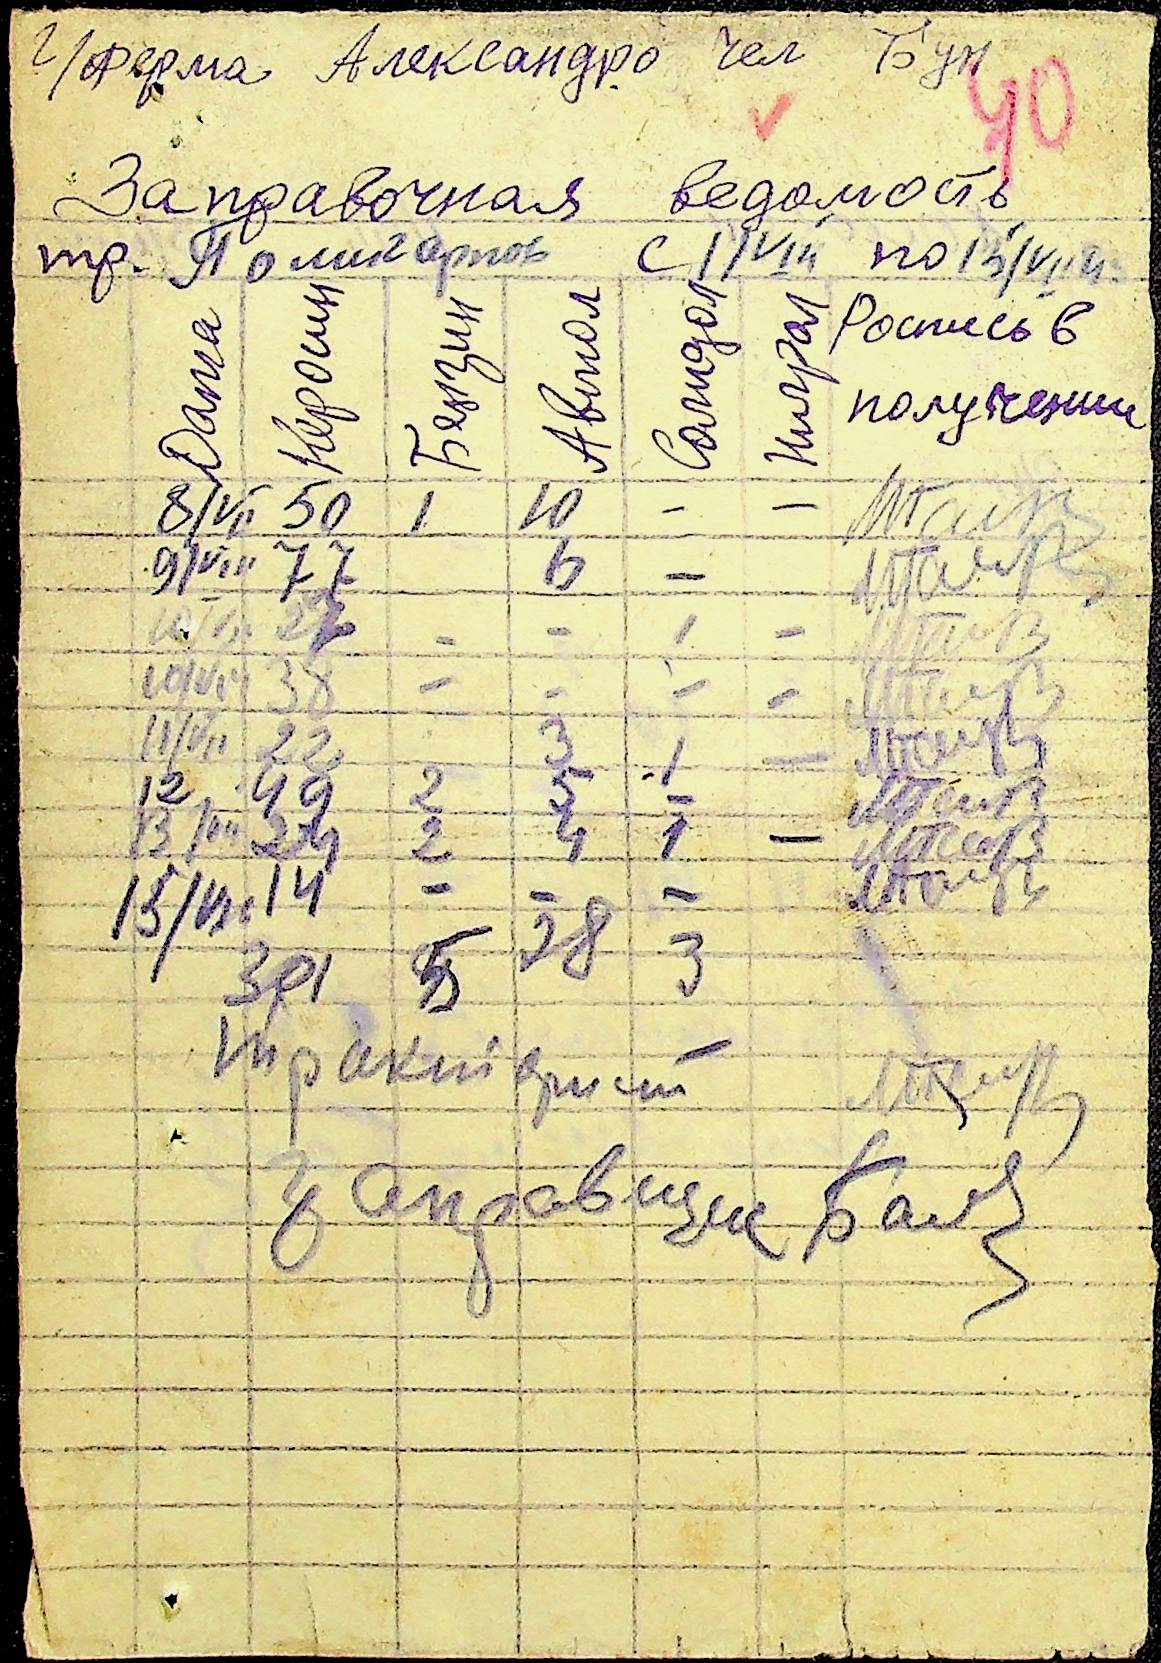 Ч/Ферма Александро Чел Бун
40
Заправочная ведомость
тр. Поликарпов с 1/VIII по 15/VIII
Дата Керосин Бензин Автол Солидол Нигрол Роспись в получении
8/VII 50 1 10 - -
9/VIII 77 6 -
10/VII 27 - - 1 -
10/VII 38 - - - -
11/VII 22 3 1 -
12 49 2 5 -
13/VIII 24 2 4 1 -
15/VIII 14 - - -
301 5 28 3
Тракторист
Заправщик